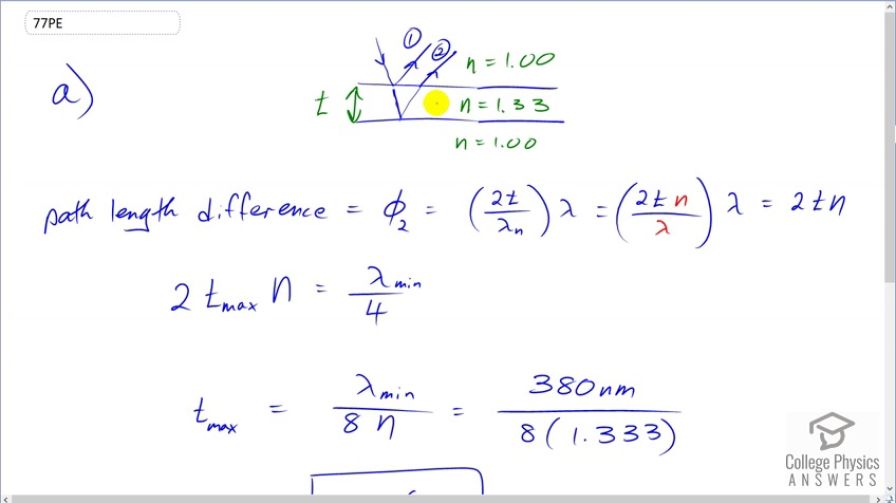 77PE
a)
① ② n = 1.00
t n = 1.33
n = 1.00
path length difference = ϕ₂ = (2t/λₙ) λ = (2tn/λ) λ = 2tn
2 t_max n = λ_min/4
t_max = λ_min/8n = 380nm/8(1.333)
College Physics
ANSWERS